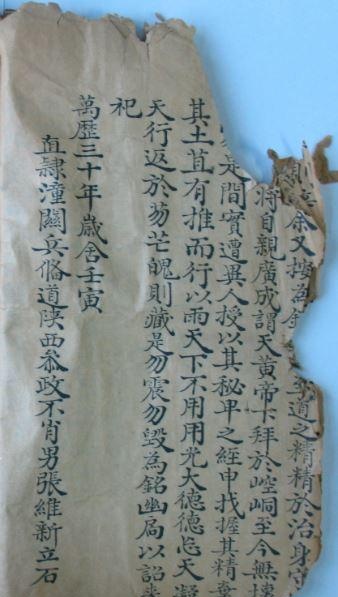 則慎余又按為銘至道之精精於治身
將自親廣成謂天黃帝下拜於崆峒至今無壞
是間實遭異人授以其秘畀之經申找握其精
其土苴有推而行以雨天下不用用光大德德忘天
天行返於芴芒魄則藏是勿震勿毀為銘幽局以詔
祀
萬歷三十年歲舍壬寅
直隸潼關兵俻道陝西叅政不肖男張維新立石